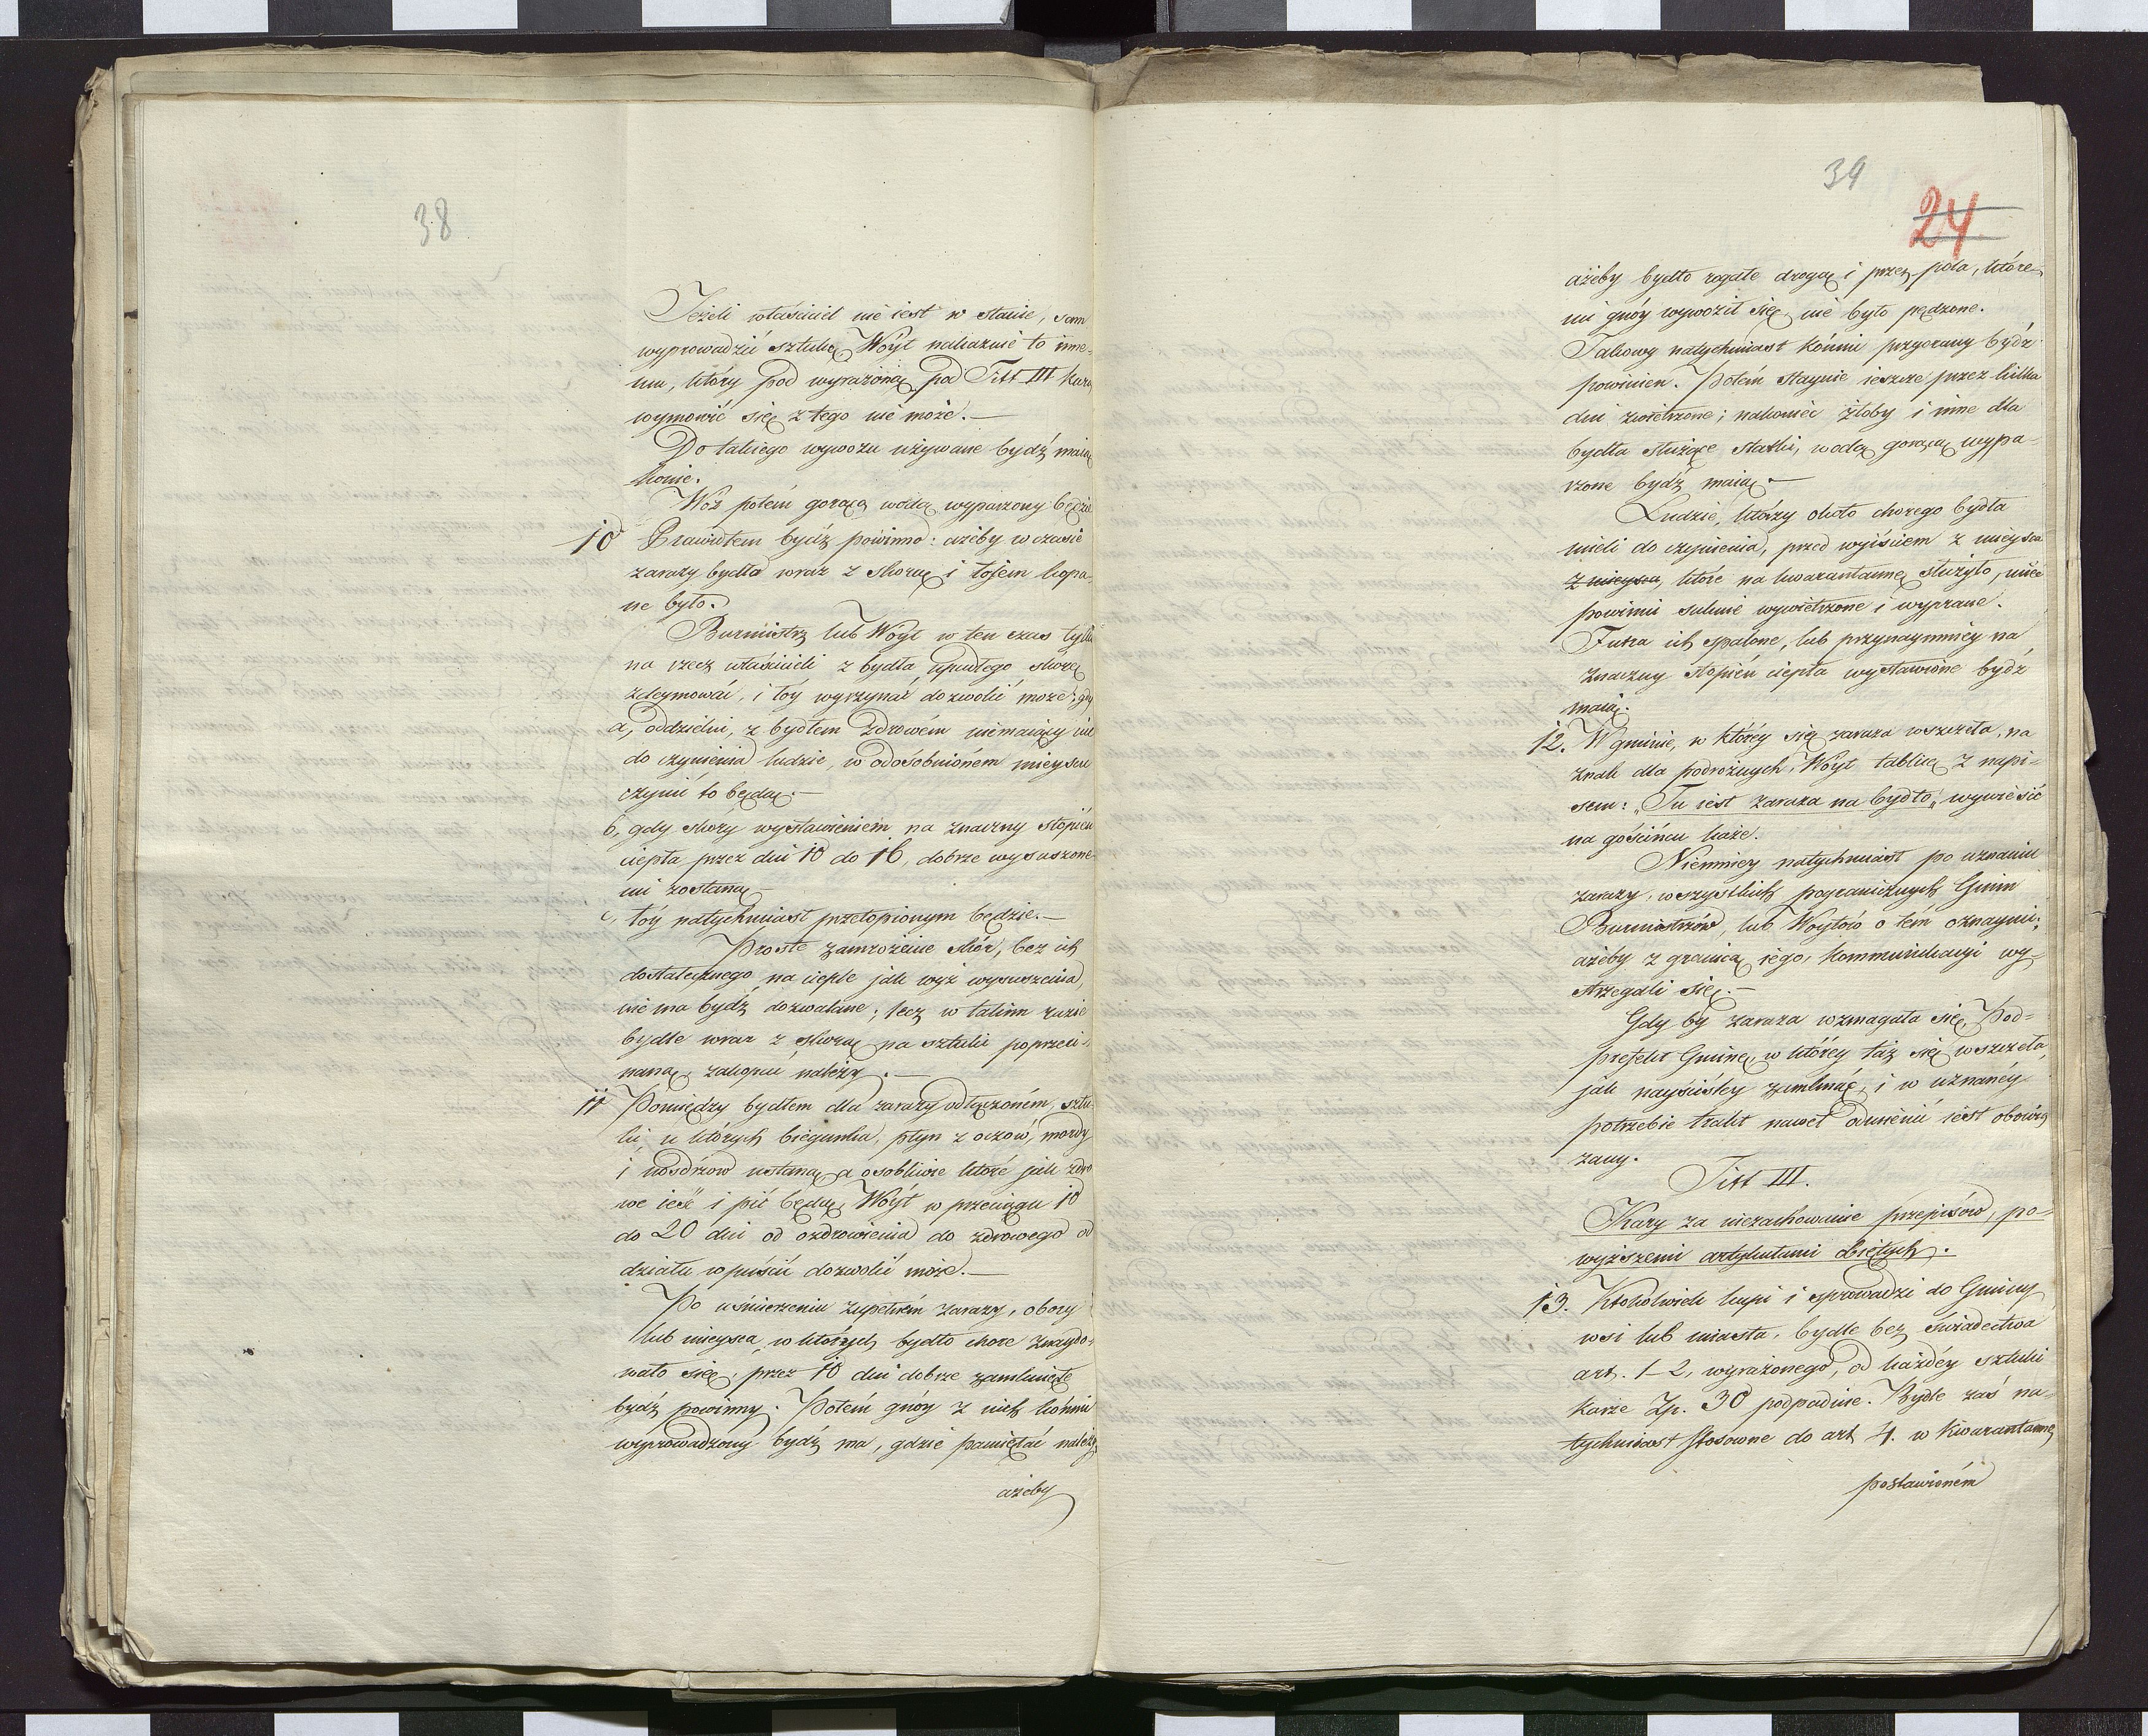 38
Jeżeli właściciel nie iest w stanie, sam
wyprowadzić sztukę, Wóyt nakazuie to inne-
mu, który pod wyrażoną pod Titt III karą
wymowić się z tego nie może.—
Do takiego wywozu używane bydź maią
konie.
Wóz potém gorącą wodą wyparzony będzie
10 Prawidłem bydź powinno: ażeby w czasie
zarazy bydła wraz z skorą i łojem kopa-
ne było.
Burmistrz lub Woyt w ten czas tylko
na rzecz właścicieli z bydła upadłego skorę
zdeymować, i łóy wyrzynać dozwolić może: gdy
a, oddzielni, z bydłem zdrowém niemaiący nic
do czynienia ludzie, w odosobnioném mieyscu
czynić to będą.—
b, gdy skory wystawieniem na znaczny stopień
ciepła przez dni 10 do 16, dobrze wysuszone-
mi zostaną—
c, łóy natychmiast przetopionym będzie.—
Proste zamrożenie skór, bez ich
dostatecznego na cieple jak wyż wysuszenia,
nie ma bydź dozwalane; lecz w takim razie
bydle wraz z skorą na sztuki poprzeci-
naną, zakopać należy.—
11 Pomiędzy bydłem dla zarazy odłączoném, sztu-
ki u których biegunka, płyn z oczów, mordy
i nosdrzow ustaną, a osobliwie które jak zdro
we ieść i pić będą, Wóyt w przeciągu 10
do 20 dni od ozdrowienia do zdrowego od
działu wpuścić dozwolić może.—
Po uśmierzeniu zupełném zarazy, obory
lub mieysca, w których bydło chore znaydo-
wało się, przez 10 dni dobrze zamknięte
bydź powinny. Potém gnóy z nich końmi
wyprowadzony bydź ma, gdzie pamiętać należy,
ażeby
39
24
ażeby bydło rogate drogą i przez pola, które-
mi gnóy wywoził się, nie było pędzone.
Takowy natychmiast końmi przyorany bydź
powinien. Potém staynie ieszcze przez kilka
dni zwietrzone; nakoniec żłoby i inne dla
bydła służące statki, wodą gorącą wypa-
rzone bydź maią.—
Ludzie, którzy około chorego bydła
mieli do czynienia, przed wyiściem z mieysca
z mieysca, które na kwarantannę służyło, mieć
powinni suknie wywietrzone i wyprane.
Futra ich spalone, lub przynaymniey na
znaczny stopień ciepła wystawione bydź
maią.
12. W gminie, w którey się zaraza wszczeła, na
znak dla podróżnych, Wóyt tablicę z napi-
sem: „Tu iest zaraza na bydło„ wywiesić
na gościńcu każe.
Niemniey natychmiast po uznaniu
zarazy, wszystkich pogranicznych Gmin
Burmistrzów, lub Woytów o tém oznaymi;
ażeby z granicą iego, kommunikacyi wy-
strzegali się.—
Gdy by zaraza wzmagała się, Pod-
prefekt Gminę, w którey taż się wszczeła,
jak nayściśley zamknąć, i w uznaney
potrzebie trakt nawet odmienić iest obowią
zany.
Titt III.
Kary za niezachowanie przepisów, po-
wyższemi artykułami obiętych.
13. Ktokolwiek kupi i sprowadzi do Gminy
wsi lub miasta, bydle bez swiadectwa
art. 1-2, wyrażonego, od każdéy sztuki
karze Zp. 30 podpadnie. Bydle zaś na-
tychmiast stosowne do art 4. w kwarantannę
postawioném